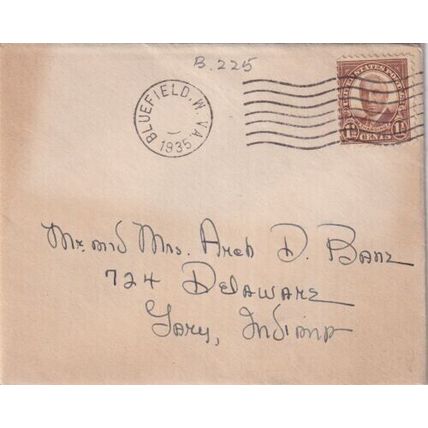 B.225
BLUEFIELD. W. VA.
1935
UNITED STATES POSTAGE
1½ CENTS 1½
Mr. and Mrs. Arch D. Banz
724 Delaware
Gary, Indiana